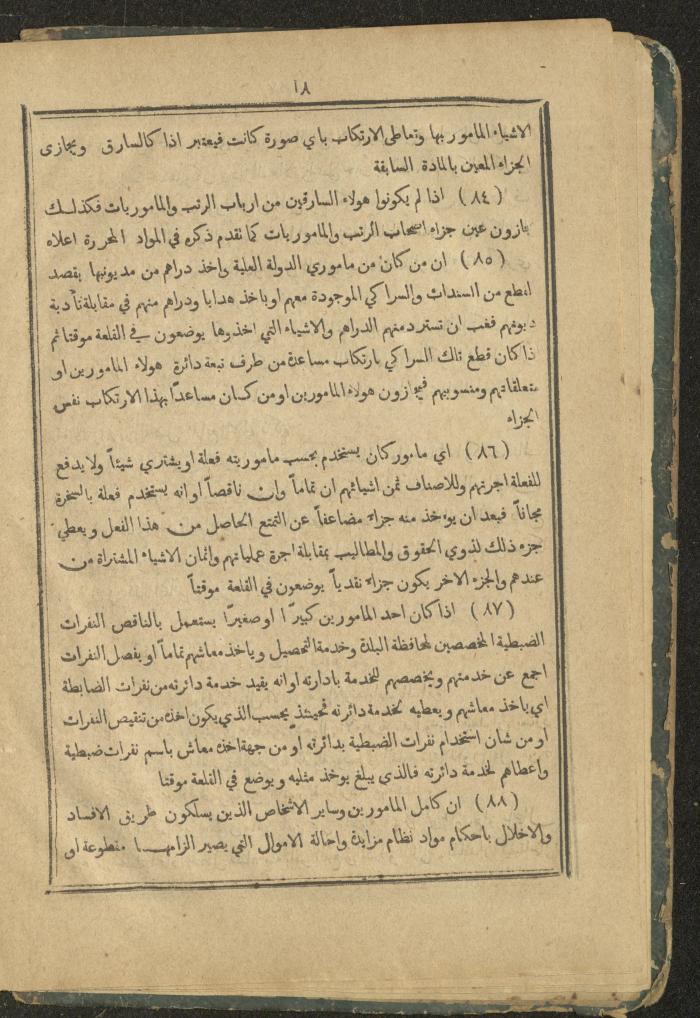 ١٨
الاشياء المامور بها وتعاطى الارتكاب باي صورة كانت فيعتبر اذا كالسارق ويجازى
الجزاء المعين بالمادة السابقة
(٨٤) اذا لم يكونوا هولاء السارقين من ارباب الرتب والماموريات فكذلك
يجازون عين جزاء اصحاب الرتب والماموريات كما تقدم ذكره في المواد المحررة اعلاه
(٨٥) ان من كان من ماموري الدولة العلية واخذ دراهم من مديونيها بقصد
القطع من السندات والسراكي الموجودة معهم او باخذ هدايا ودراهم منهم في مقابلة تأدية
ديونهم فغب ان تسترد منهم الدراهم والاشياء التي اخذوها يوضعون في القلعة موقتا ثم
اذا كان قطع تلك السراكي بارتكاب مساعدة من طرف تبعة دائرة هولاء المامورين او
متعلقاتهم ومنسوبيهم فيجازون هولاء المامورين او من كان مساعدًا بهذا الارتكاب نفس
الجزاء
(٨٦) اي مامور كان يستخدم بحسب ماموريته فعلة او يشتري شيئاً ولا يدفع
للفعلة اجرتهم وللاصناف ثمن اشيائهم ان تماماً وان ناقصاً او انه يستخدم فعلة بالسخرة
مجاناً فبعد ان يوخذ منه جزاء مضاعفاً عن التمتع الحاصل من هذا الفعل ويعطي
جزء ذلك لذوي الحقوق والمطاليب بمقابلة اجرة عملياتهم واثمان الاشياء المشتراة من
عندهم والجزء الاخر يكون جزاء نقدياً يوضعون في القلعة موقتاً
(٨٧) اذا كان احد المامورين كبيرًا او صغيرًا يستعمل بالناقص النفرات
الضبطية المخصصين لمحافظة البلدة وخدمة التحصيل وياخذ معاشهم تماماً او يفصل النفرات
اجمع عن خدمتهم ويخصصهم للخدمة بادارته او انه يقيد خدمة دائرته من نفرات الضابطة
اي باخذ معاشهم ويعطيه لخدمة دائرته فحينئذ بحسب الذي يكون اخذه من تنقيص النفرات
او من شان استخدام نفرات الضبطية بدائرته او من جهة اخذه معاش باسم نفرات ضبطية
واعطاهم لخدمة دائرته فالذي يبلغ يوخذ مثليه ويوضع في القلعة موقتا
(٨٨) ان كامل المامورين وساير الاشخاص الذين يسلكون طريق الافساد
والاخلال باحكام مواد نظام مزايدة واحالة الاموال التي يصير الزامها مقطوعة او